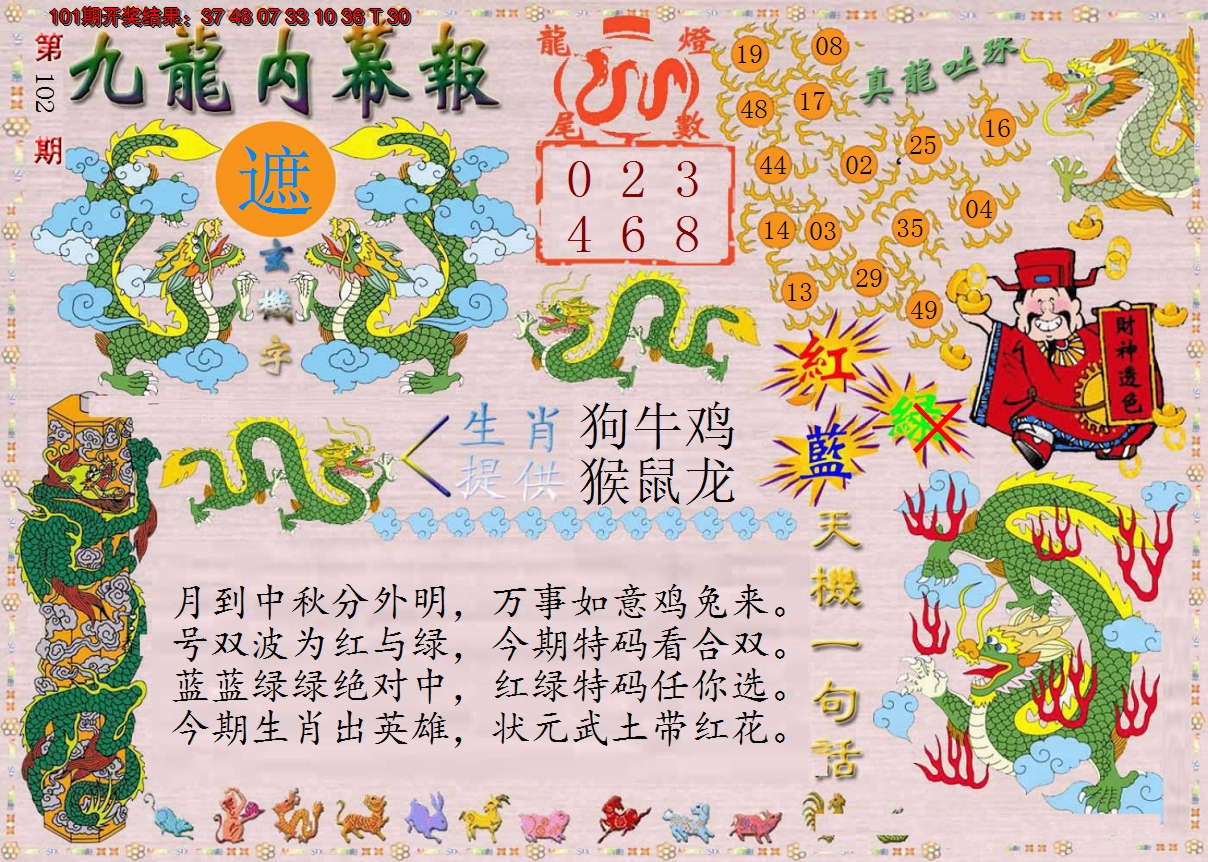 101期开奖结果：37 48 07 33 10 36 T 30
第102期
九龍内幕報
遮
玄機字
龍燈
尾數
0 2 3
4 6 8
真龍吐珠
19 08
48 17
25 16
44 02
04
14 03 35
29
13
49
財神透色
紅
绿
藍
生肖 狗牛鸡
提供 猴鼠龙
天機一句话
月到中秋分外明，万事如意鸡兔来。
号双波为红与绿，今期特码看合双。
蓝蓝绿绿绝对中，红绿特码任你选。
今期生肖出英雄，状元武土带红花。